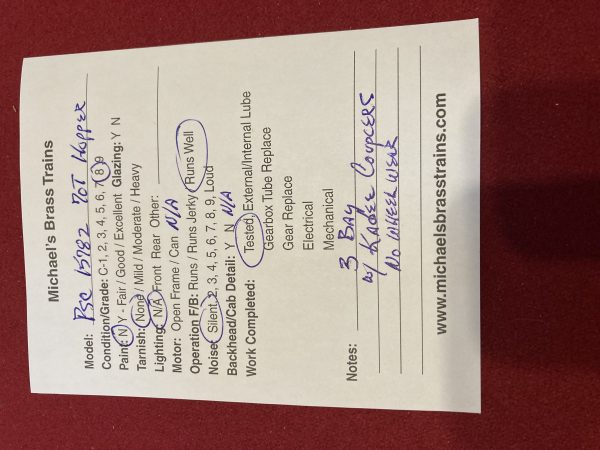 Michael's Brass Trains
Model: PSC 15782 DOT HOPPER
Condition/Grade: C-1, 2, 3, 4, 5, 6, 7, 8, 9
Paint: N Y - Fair / Good / Excellent Glazing: Y N
Tarnish: None / Mild / Moderate / Heavy
Lighting: N/A Front Rear Other:
Motor: Open Frame / Can N/A
Operation F/B: Runs / Runs Jerky / Runs Well
Noise: Silent, 2, 3, 4, 5, 6, 7, 8, 9, Loud
Backhead/Cab Detail: Y N N/A
Work Completed: Tested, External/Internal Lube
Gearbox Tube Replace
Gear Replace
Electrical
Mechanical
Notes: 3 BAY
w/ KADEE COUPLERS
NO WHEEL WEAR
www.michaelsbrasstrains.com